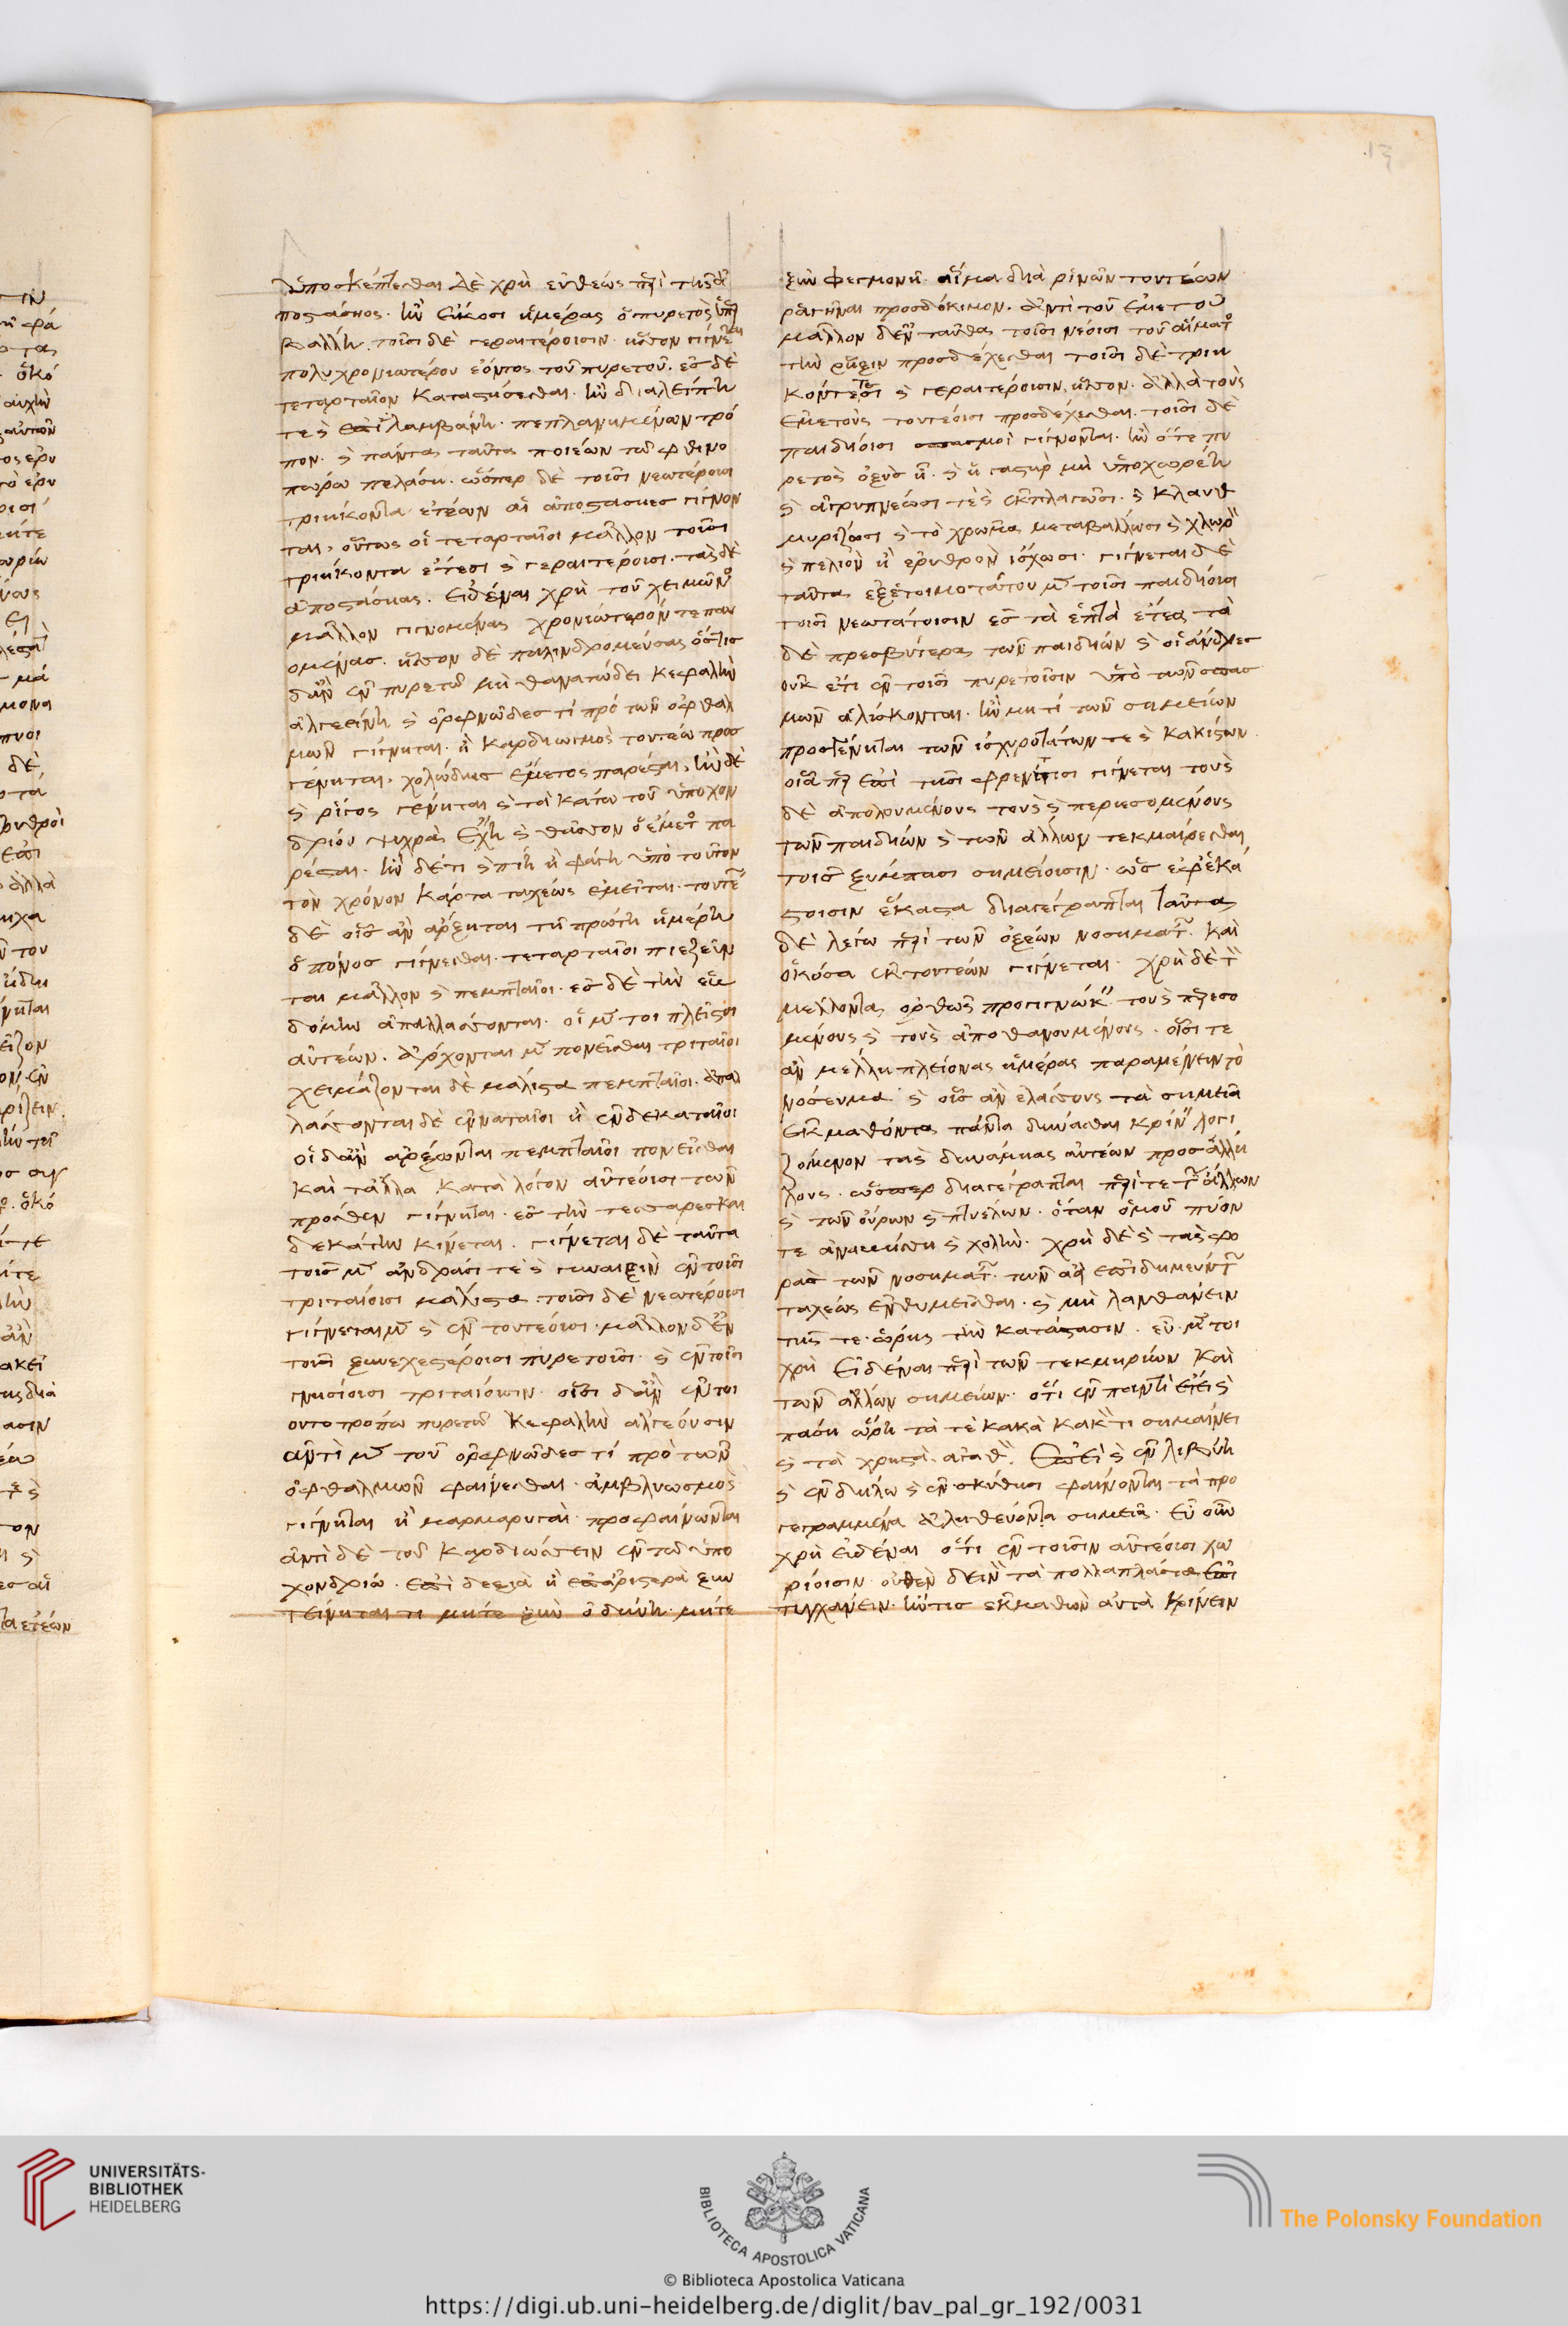 Ὑποσκέπτεσθαι δὲ χρὴ εὐθέως περὶ τῆς ἀ
ποστάσηος. ἢν εἴκοσι ἡμέρας ὁ πυρετὸς ὑπερ
βάλλη. τοῖσι δὲ γεραιτέροισιν ἧσσον γίγνεται
πολυχρονιωτέρου ἐόντος τοῦ πυρετοῦ. ἐς δὲ
τεταρταῖον καταστήσεσθαι. ἢν διαλείπη
τε καὶ ἐπιλαμβάνη. πεπλανημένων τρό
πον. καὶ πάντα ταῦτα ποιέων τῶ φθινο
πώρω πελάση. ὥσπερ δὲ τοῖσι νεωτέροισι
τριήκοντα ἐτέων αἱ ἀποστάσηες γίγνον
ται, οὕτως οἱ τεταρταῖοι μᾶλλον τοῖσι
τριήκοντα ἔτεσι καὶ γεραιτέροισι. τὰς δὲ
ἀποστάσηας. εἰδέναι χρὴ τοῦ χειμῶνος
μᾶλλον γιγνομένας χρονιώτερόν τε παυ
ομένας. ἧσσον δὲ παλινδρομεύσας ὅστις
δ' ἂν ἐν πυρετῶ μὴ θανατώδει κεφαλὴν
ἀλγεείνη καὶ ὀρφνῶδές τι πρὸ τῶν ὀφθαλ
μῶν γίγνηται. ἢ καρδιωγμὸς τουτέω προσ
γένηται. χολώδης ἔμετος παρέσται, ἢν δὲ
καὶ ῥῖγος γένηται καὶ τὰ κάτω τοῦ ὑποχον
δρίου ψυχρὰ ἔχη καὶ θᾶσσον ὁ ἔμετος πα
ρέσται. ἢν δέ τι καὶ πίη ἢ φάγη ὑπὸ τοῦτον
τὸν χρόνον κάρτα ταχέως ἐμεῖται. τουτέων
δὲ οἷσιν ἂν ἄρξηται τῆ πρώτη ἡμέρη
ὁ πόνος γίγνεσθαι. τεταρταῖοι πιεζεῦν
ται μᾶλλον καὶ πεμπταῖοι. ἐς δὲ τὴν ἑβ
δόμην ἀπαλλάσσονται. οἱ μέντοι πλεῖστοι
αὐτέων. ἄρχονται μὲν πονεῖσθαι τριταῖοι
χειμάζονται δὲ μάλιστα πεμπταῖοι. ἀπαλ
λάσσονται δὲ ἐνναταῖοι ἢ ἑνδεκαταῖοι
οἳ δ' ἂν ἄρξωνται πεμπταῖοι πονεῖσθαι
καὶ τἆλλα κατὰ λόγον αὐτέοισι τῶν
πρόσθεν γίγνηται. ἐς τὴν τεσσαρεσκαι
δεκάτην κρίνεται. γίγνεται δὲ ταῦτα
τοῖς μὲν ἀνδράσι τε καὶ γυναιξὶν ἐν τοῖσι
τριταίοισι μάλιστα. τοῖσι δὲ νεωτέροισι
γίγνεται μὲν καὶ ἐν τουτέοισι. μᾶλλον δ' ἐν
τοῖσι ξυνεχεστέροισι πυρετοῖσι. καὶ ἐν τοῖσι
γνησίοισι τριταίοισιν. οἷσι δ' ἂν ἐν τοι
ουτοτρόπω πυρετῶ κεφαλὴν ἀλγέουσιν
ἀντὶ μὲν τοῦ ὀρφνῶδές τι πρὸ τῶν
ὀφθαλμῶν φαίνεσθαι. ἀμβλυωσμὸς
γίγνηται ἢ μαρμαρυγαὶ προσφαίνωνται
ἀντὶ δὲ τοῦ καρδιώσσειν ἐν τῶ ὑπο
χονδρίω. ἐπὶ δεξιὰ ἢ ἐπ' ἀριστερὰ ξυν
τείνηταί τι μήτε ξὺν ὀδύνη. μήτε
ξὺν φλεγμονῆ. αἷμα διὰ ῥινῶν τουτέων
ῥαγῆναι προσδόκιμον. ἀντὶ τοῦ ἐμέτου
μᾶλλον δ' ἐνταῦθα τοῖσι νέοισι τοῦ αἵματος
τὴν ῥῆξιν προσδέχεσθαι τοῖσι δὲ τριη
κοντέτεσι καὶ γεραιτέροισιν, ἧσσον. ἀλλὰ τοὺς
ἐμέτους τουτέοισι προσδέχεσθαι. τοῖσι δὲ
παιδίοισι σπασμοὶ γίγνονται. ἢν ὅτε πυ
ρετὸς ὀξὺς ἦ. καὶ ἡ γαστὴρ μὴ ὑποχωρέη
καὶ ἀγρυπνέωσί τε καὶ ἐκπλαγῶσι. καὶ κλαυθ
μυρίζωσι καὶ τὸ χρῶμα μεταβάλλωσι καὶ χλωρὸν
καὶ πελιὸν ἢ ἐρυθρὸν ἴσχωσι. γίγνεται δὲ
ταῦτα ἐξ ἑτοιμοτάτου μὲν τοῖσι παιδίοισι
τοῖσι νεωτάτοισιν ἐς τὰ ἑπτὰ ἔτεα τὰ
δὲ πρεσβύτερα τῶν παιδίων καὶ οἱ ἄνδρες
οὐκ ἔτι ἐν τοῖσι πυρετοῖσιν ὑπὸ τῶν σπασ
μῶν ἁλίσκονται. ἢν μή τι τῶν σημείων
προσγένηται τῶν ἰσχυροτάτων τε καὶ κακίστων
οἷα περ ἐπὶ τῆσι φρενίτισι γίνεται τοὺς
δὲ ἀπολουμένους τοὺς καὶ περιεσομένους
τῶν παιδίων καὶ τῶν ἄλλων τεκμαίρεσθαι
τοῖσι ξύμπασι σημείοισιν. ὡς ἐφ' ἑκά
στοισιν ἕκαστα διαγέγραπται ταῦτα
δὲ λέγω περὶ τῶν ὀξέων νοσημάτων. καὶ
ὁκόσα ἐκ τουτέων γίγνεται. χρὴ δὲ τὸν
μέλλοντα ὀρθῶς προγιγνώσκειν τοὺς περιεσο
μένους καὶ τοὺς ἀποθανουμένους. οἷσί τε
ἂν μέλλη πλείονας ἡμέρας παραμένειν τὸ
νόσευμα καὶ οἷσιν ἂν ἐλάσσους τὰ σημεῖα
ἐκμαθόντα πάντα δύνασθαι κρίνειν λογι
ζόμενον τὰς δυνάμιας αὐτέων πρὸς ἀλλή
λους. ὥσπερ διαγέγραπται περί τε τῶν ἄλλων
καὶ τῶν οὔρων καὶ πτυέλων. ὅταν ὁμοῦ πύον
τε ἀναβήσση καὶ χολήν. χρὴ δὲ καὶ τὰς φο
ρὰς τῶν νοσημάτων. τῶν αἰεὶ ἐπιδημεύντων
ταχέως ἐνθυμεῖσθαι. καὶ μὴ λανθάνειν
τῆς τε ὥρης τὴν κατάστασιν. εὖ μέντοι
χρὴ εἰδέναι περὶ τῶν τεκμηρίων καὶ
τῶν ἄλλων σημείων. ὅτι ἐν παντὶ ἔτει καὶ
πάση ὥρη τά τε κακὰ κακόν τι σημαίνει
καὶ τὰ χρηστὰ. ἀγαθόν. ἐπεὶ καὶ ἐν λιβύη
καὶ ἐν δήλω καὶ ἐν σκυθίη φαίνονται τὰ προ
γεγραμμένα ἀληθεύοντα σημεῖα. εὖ οὖν
χρὴ εἰδέναι ὅτι ἐν τοῖσιν αὐτέοισι χω
ρίοισιν οὐδὲν δεινὸν τὰ πολλαπλάσια ἐπι
τυγχάνειν. ἤν τις ἐκμαθὼν αὐτὰ κρίνειν
UNIVERSITÄTS-
BIBLIOTHEK
HEIDELBERG
BIBLIOTECA APOSTOLICA VATICANA
The Polonsky Foundation
© Biblioteca Apostolica Vaticana
https://digi.ub.uni-heidelberg.de/diglit/bav_pal_gr_192/0031